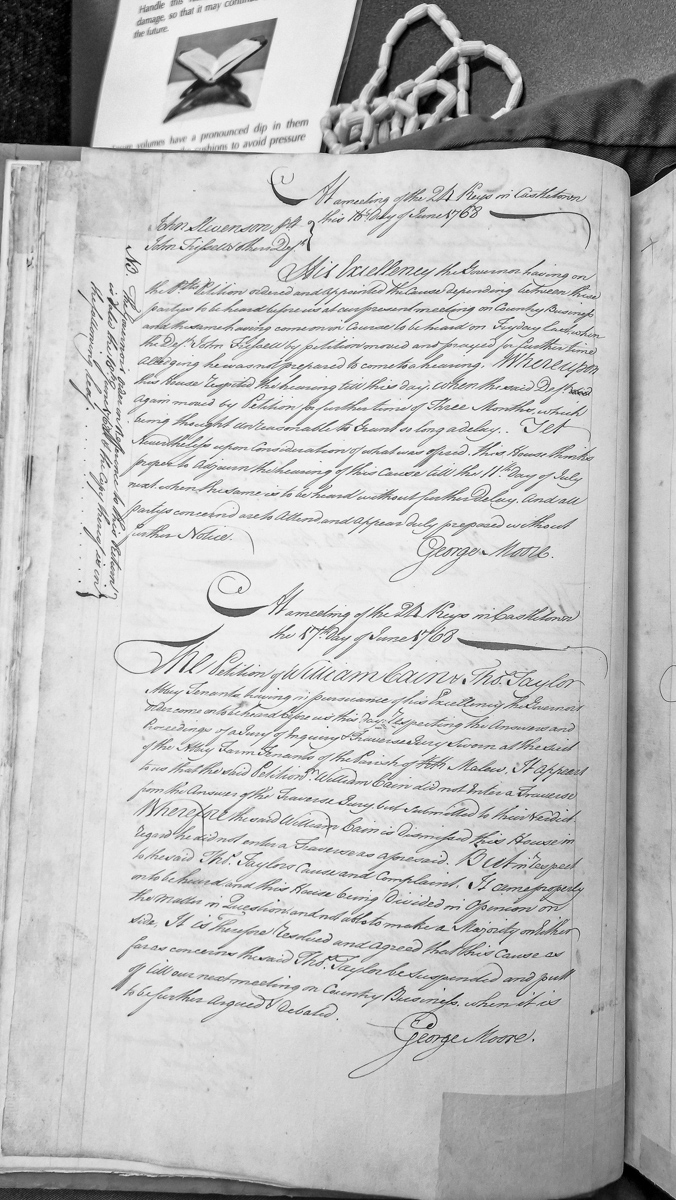 Handle this
damage, so that it may continue
the future.
volumes have a pronounced dip in them
cushions to avoid pressure
At a meeting of the 24 Keys in Castletown
this 16th Day of June 1768
John Stevenson
John Fissell & others Defts
His Excellency the Governor having on
the Petition ordered and appointed the Cause depending between these
partys to be heard before us at our present meeting on Country Business
and the same having come on in Course to be heard on Tuesday last when
the Deft. John Fissell by petition moved and prayed for further time
alledging he was not prepared to come to a hearing. Whereupon
this House respited the hearing till this day, when the said Deft.
again moved by Petition for further time of Three Months, which
being thought unreasonable to Grant so long a delay. Yet
Nevertheless upon Consideration of what was offered this House thinks
proper to Adjourn the hearing of this Cause till the 11th Day of July
next when the same is to be heard without further delay. And all
partys concerned are to Attend and appear duly prepared without
further Notice.
George Moore.
The Governors order in Response to this Petition
the following plea
At a meeting of the 24 Keys in Castletown
the 17th Day of June 1768
The Petition of William Cain & Thos. Taylor
Abbey Tenants having in pursuance of his Excellency the Governors
Order come on to be heard before us this day, Respecting the Answers and
Proceedings of a Jury of Inquiry & Traverse Jury Sworn at the Suit
of the Abby Farm Tenants of the Parish of Malew, It appears
to us that the said Petitionr. William Cain did not Enter a Traverse
from the Answer of the Traverse Jury but Submitted to their Verdict
Wherefore the said William Cain is dismissed this House in
regard he did not enter a Traverse as aforesaid. But in respect
to the said Thos. Taylors Cause and Complaint, It came properly
on to be heard and this House being Divided in Opinion on
the Matter in Question and not able to make a Majority on Either
side, It is Therefore resolved and agreed that this Cause as
far as concerns the said Thos. Taylor be suspended and putt
of till our next meeting on Country Business, when it is
to be further Argued & Debated.
George Moore.